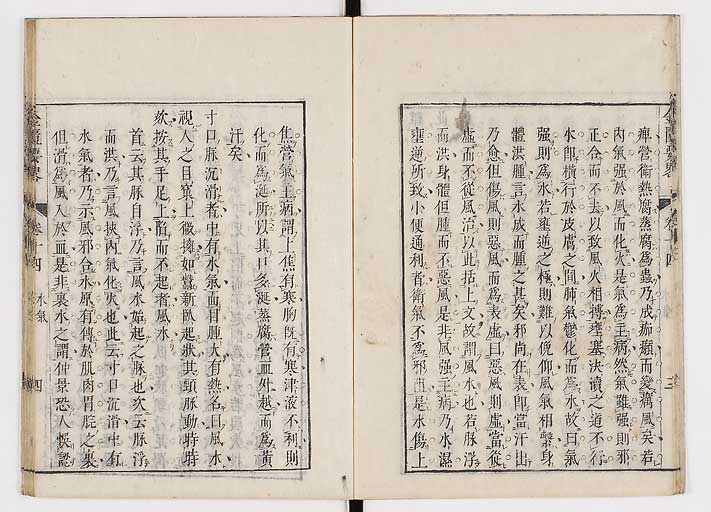 痺營衛熱腐蒸腐爲蟲乃成痂癩而變癘風矣若
内氣强於風而化火是氣爲主病然氣雖强則邪
正合而不去以致風火相搏壅塞決瀆之道不行
水即橫行於皮膚之間肺氣鬱化而爲水故曰氣
强則爲水若壅遏之極則難以俛仰風氣相繫身
體洪腫言水成而腫之甚矣邪尚在表即當汗出
乃愈但傷風則惡風而爲表虛曰惡風則虛當從
虛而不從風治以此括上文故謂風水也若脉浮
而洪身體但腫而不惡風是非風强主病乃水濕
壅逆所致小便通利者衛氣不爲邪並是水傷上
焦營氣主病謂上焦有寒胸既有寒津液不利則
化而爲涎所以其口多涎蒸腐營血外越而爲黄
汗矣
寸口脉沉滑者中有水氣面目腫大有熱名曰風水
視人之目窠上微擁如蠶新臥起狀其頸脉動時時
欬按其手足上陷而不起者風水
首云其脉自浮乃言風水始起之脉也次云脉浮
而洪乃言風挾内氣化火也此云寸口沉滑中有
水氣者乃示風邪合水原有傳於肌肉胃腔之裏
但滑爲風入於血是非裏水之謂仲景恐人悞認
卷十四
水氣
三
卷十四
水氣
四